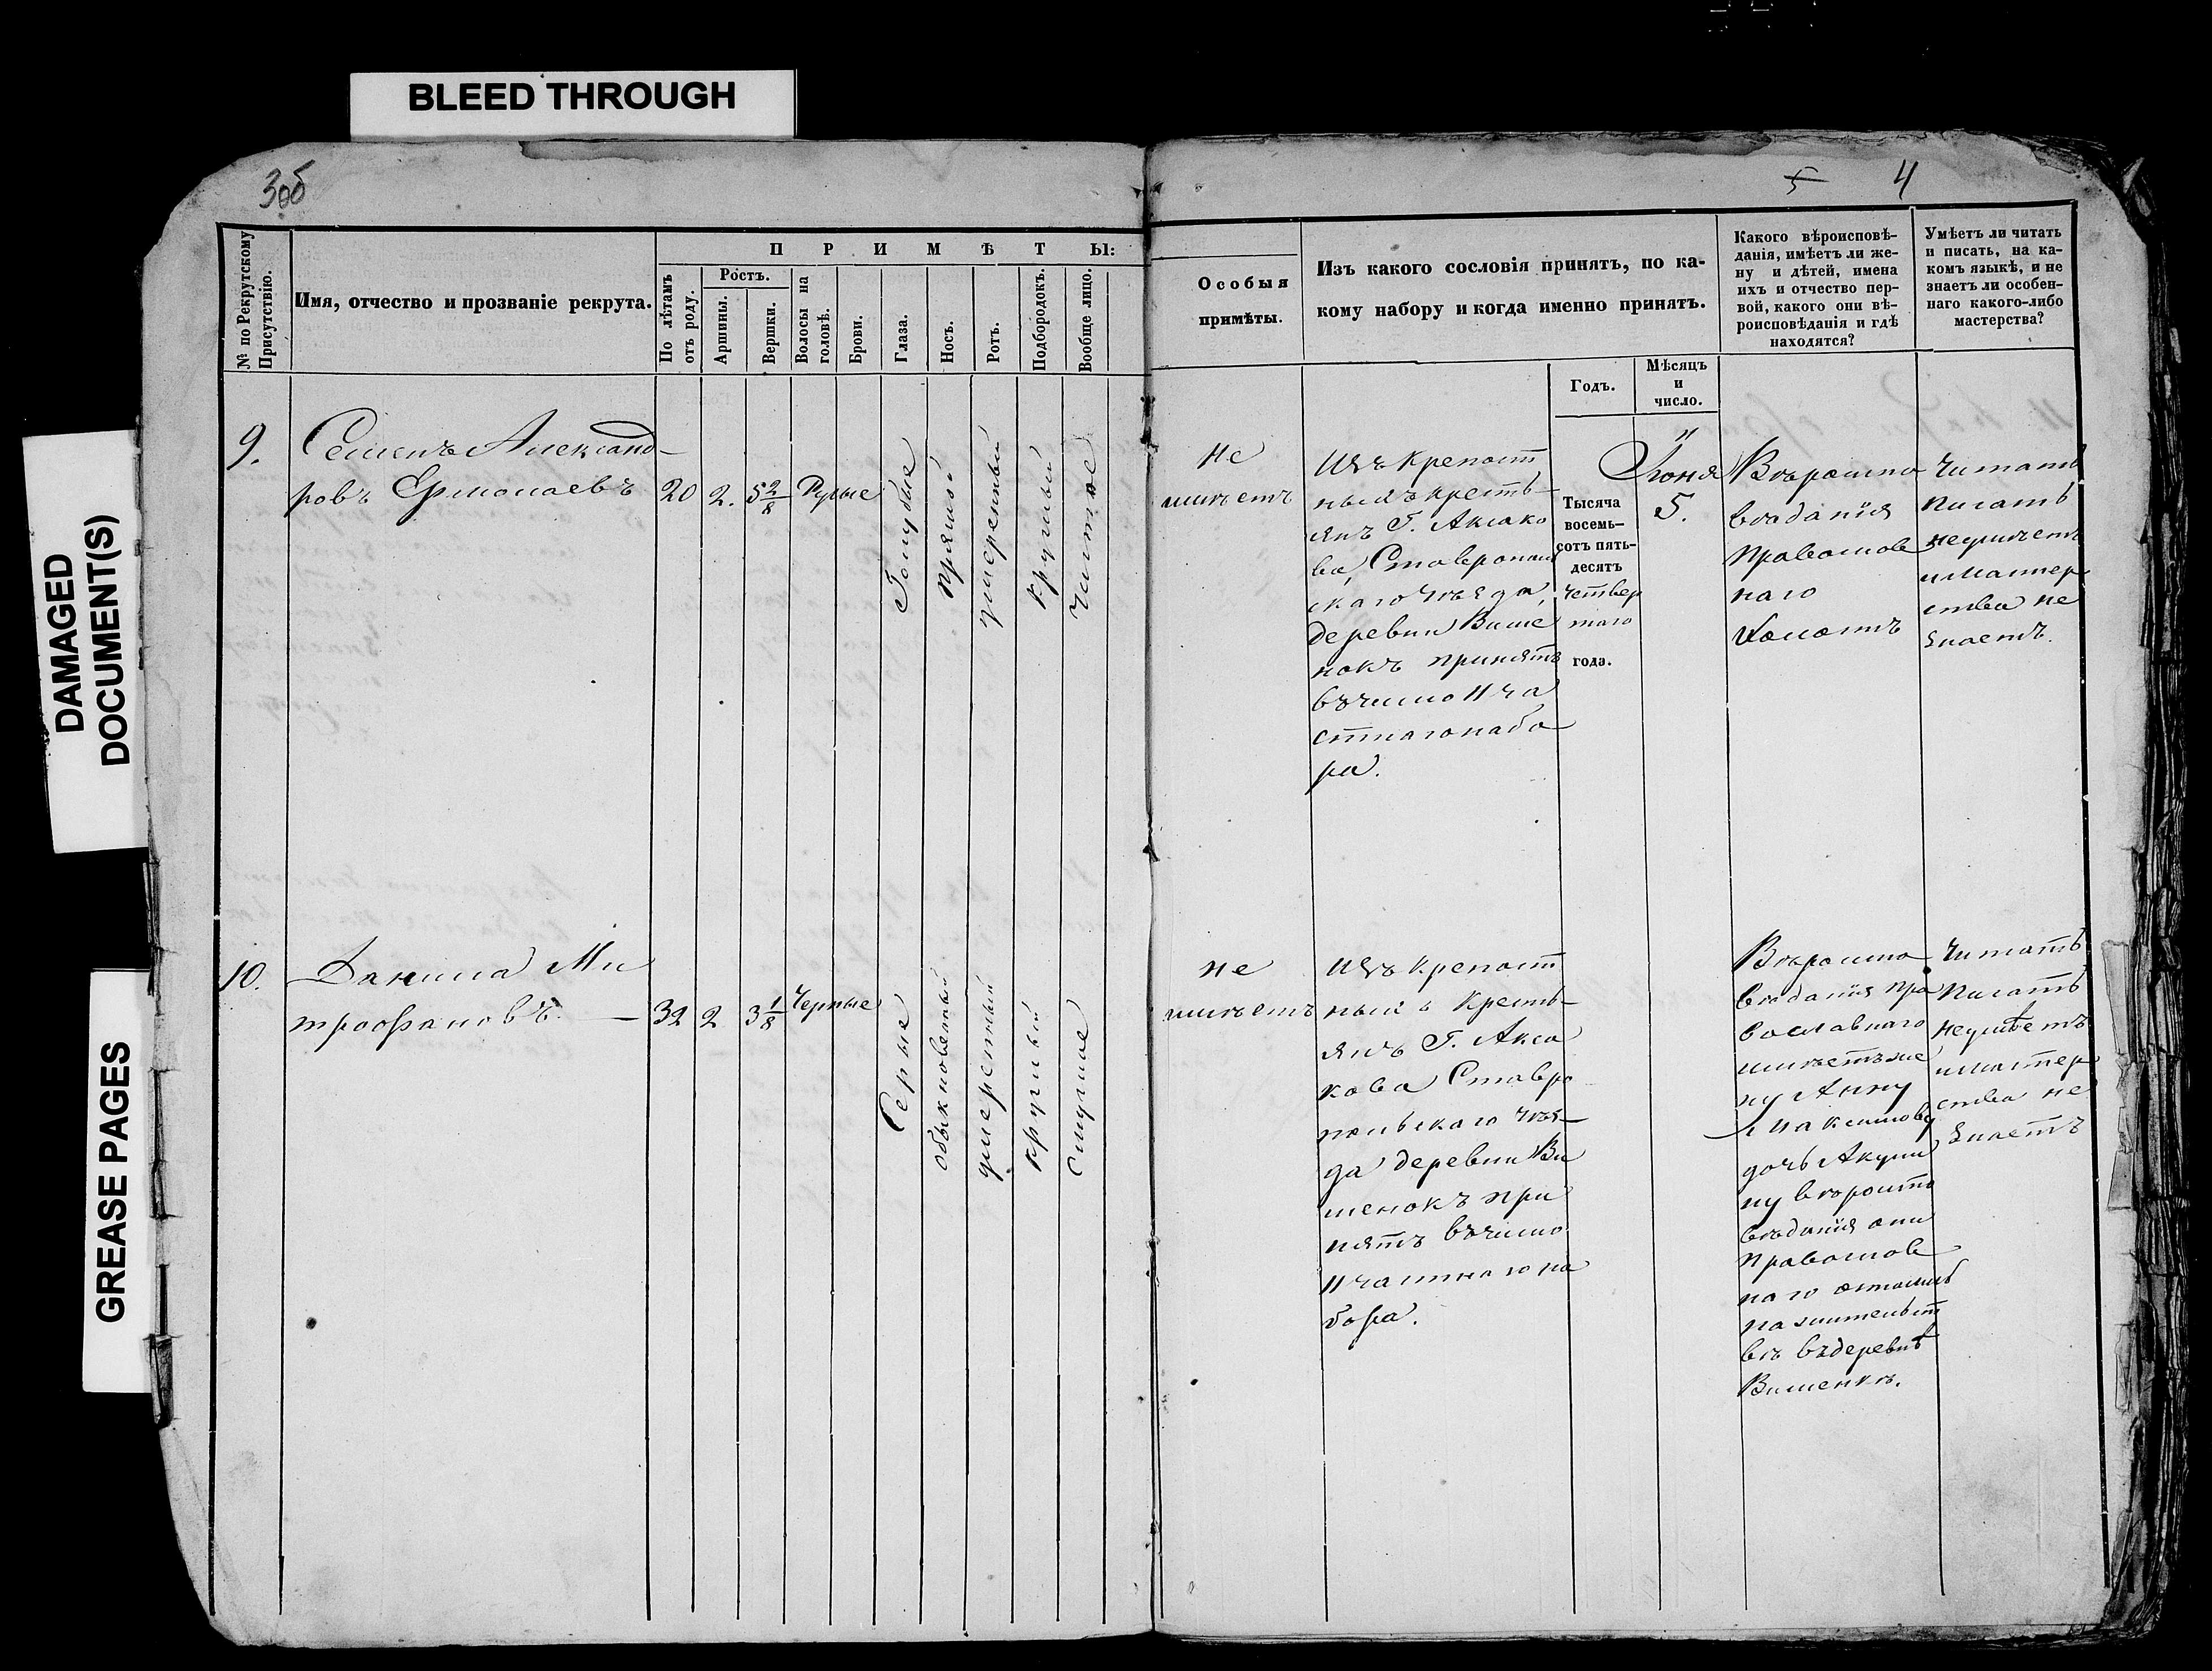 BLEED THROUGH
DAMAGED
DOCUMENT(S)
GREASE PAGES
3об
5 4
№ по Рекрутскому
Присутствію.
Имя, отчество и прозваніе рекрута.
ПРИМѢТЫ:
По лѣтамъ
отъ роду.
Ростъ.
Аршины.
Вершки.
Волосы на
головѣ.
Брови.
Глаза.
Носъ.
Ротъ.
Подбородокъ.
Вообще лицо.
Особыя
примѣты.
Изъ какого сословія принятъ, по ка-
кому набору и когда именно принятъ.
Годъ.
Мѣсяцъ
и
число.
Какого вѣроисповѣ-
данія, имѣетъ ли же-
ну и дѣтей, имена
ихъ и отчество пер-
вой, какого они вѣ-
роисповѣданія и гдѣ
находятся?
Умѣетъ ли читать
и писать, на ка-
комъ языкѣ, и не
знаетъ ли особен-
наго какого-либо
мастерства?
9.
Семенъ Александ-
ровъ Ермолаевъ
20
2.
5 2/8
Русые
Голубые
прямой
умеренный
круглый
Чистое
не
имѣетъ
Изъ крепост
ныхъ кресть-
янъ Г. Аксако
ва, Ставрополь
скаго Уѣзда,
деревни Више
нокъ принятъ
въ число 11 ча
стнаго набо
ра.
Тысяча
восемь-
сотъ пять-
десятъ
четвер
таго
года.
Іюня
5.
Вѣроиспо
вѣданія
Православ
наго
Холостъ
Читать
писать
неумѣетъ
и мастер
ства не
знаетъ.
10.
Данила Ми
трофановъ. —
32
2
3 1/8
Черные
Серые
обыкновенный
умеренный
круглый
Смуглое
не
имѣетъ
Изъ крепост
ныхъ кресть-
янъ Г. Акса
кова Ставро
польскаго Уѣз-
да деревни Ви
шенокъ при
нятъ въ число
11 частнаго на
бора.
Вѣроиспо
вѣданія пра
вославнаго
имѣетъ же
ну Анну
Максимову
дочь Акули
ну вѣроиспо
вѣданія они
православ
наго остались
на жительст
вѣ въ деревнѣ
Вишенкѣ.
Читать
писать
неумѣетъ
и мастер
ства не
знаетъ